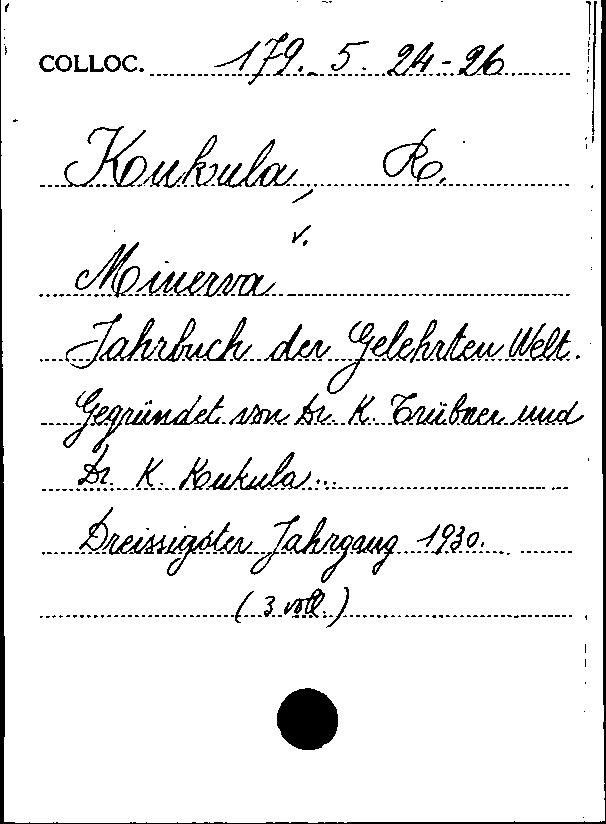 COLLOC. 179. 5. 24-26
Kukula, R.
v.
Minerva
Jahrbuch der Gelehrten Welt.
Gegründet von Dr. K. Trübner und
Dr. K. Kukula...
Dreissigster Jahrgang 1930.
(3 voll.)